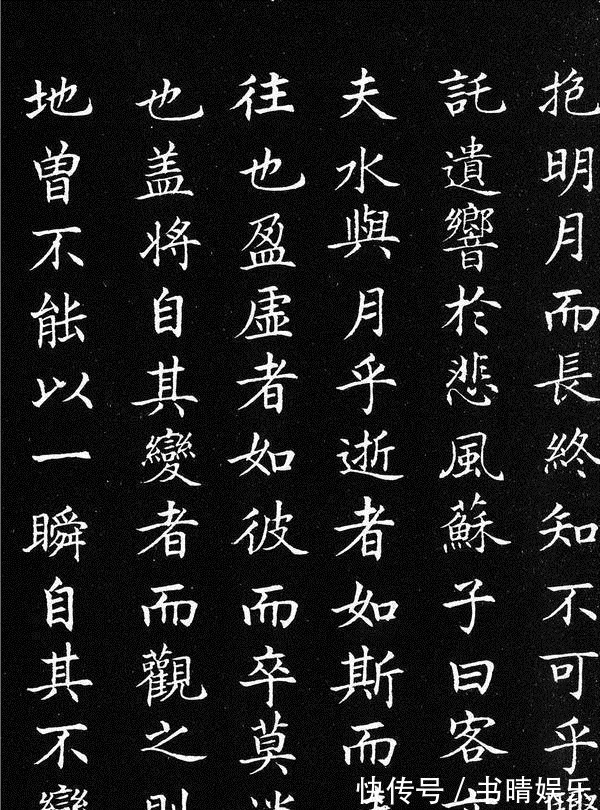 抱明月而長終知不可乎
託遺響於悲風蘇子曰客
夫水與月乎逝者如斯而
往也盈虛者如彼而卒莫
也盖將自其變者而觀之則
地曾不能以一瞬自其不變
快传号／书晴娱乐